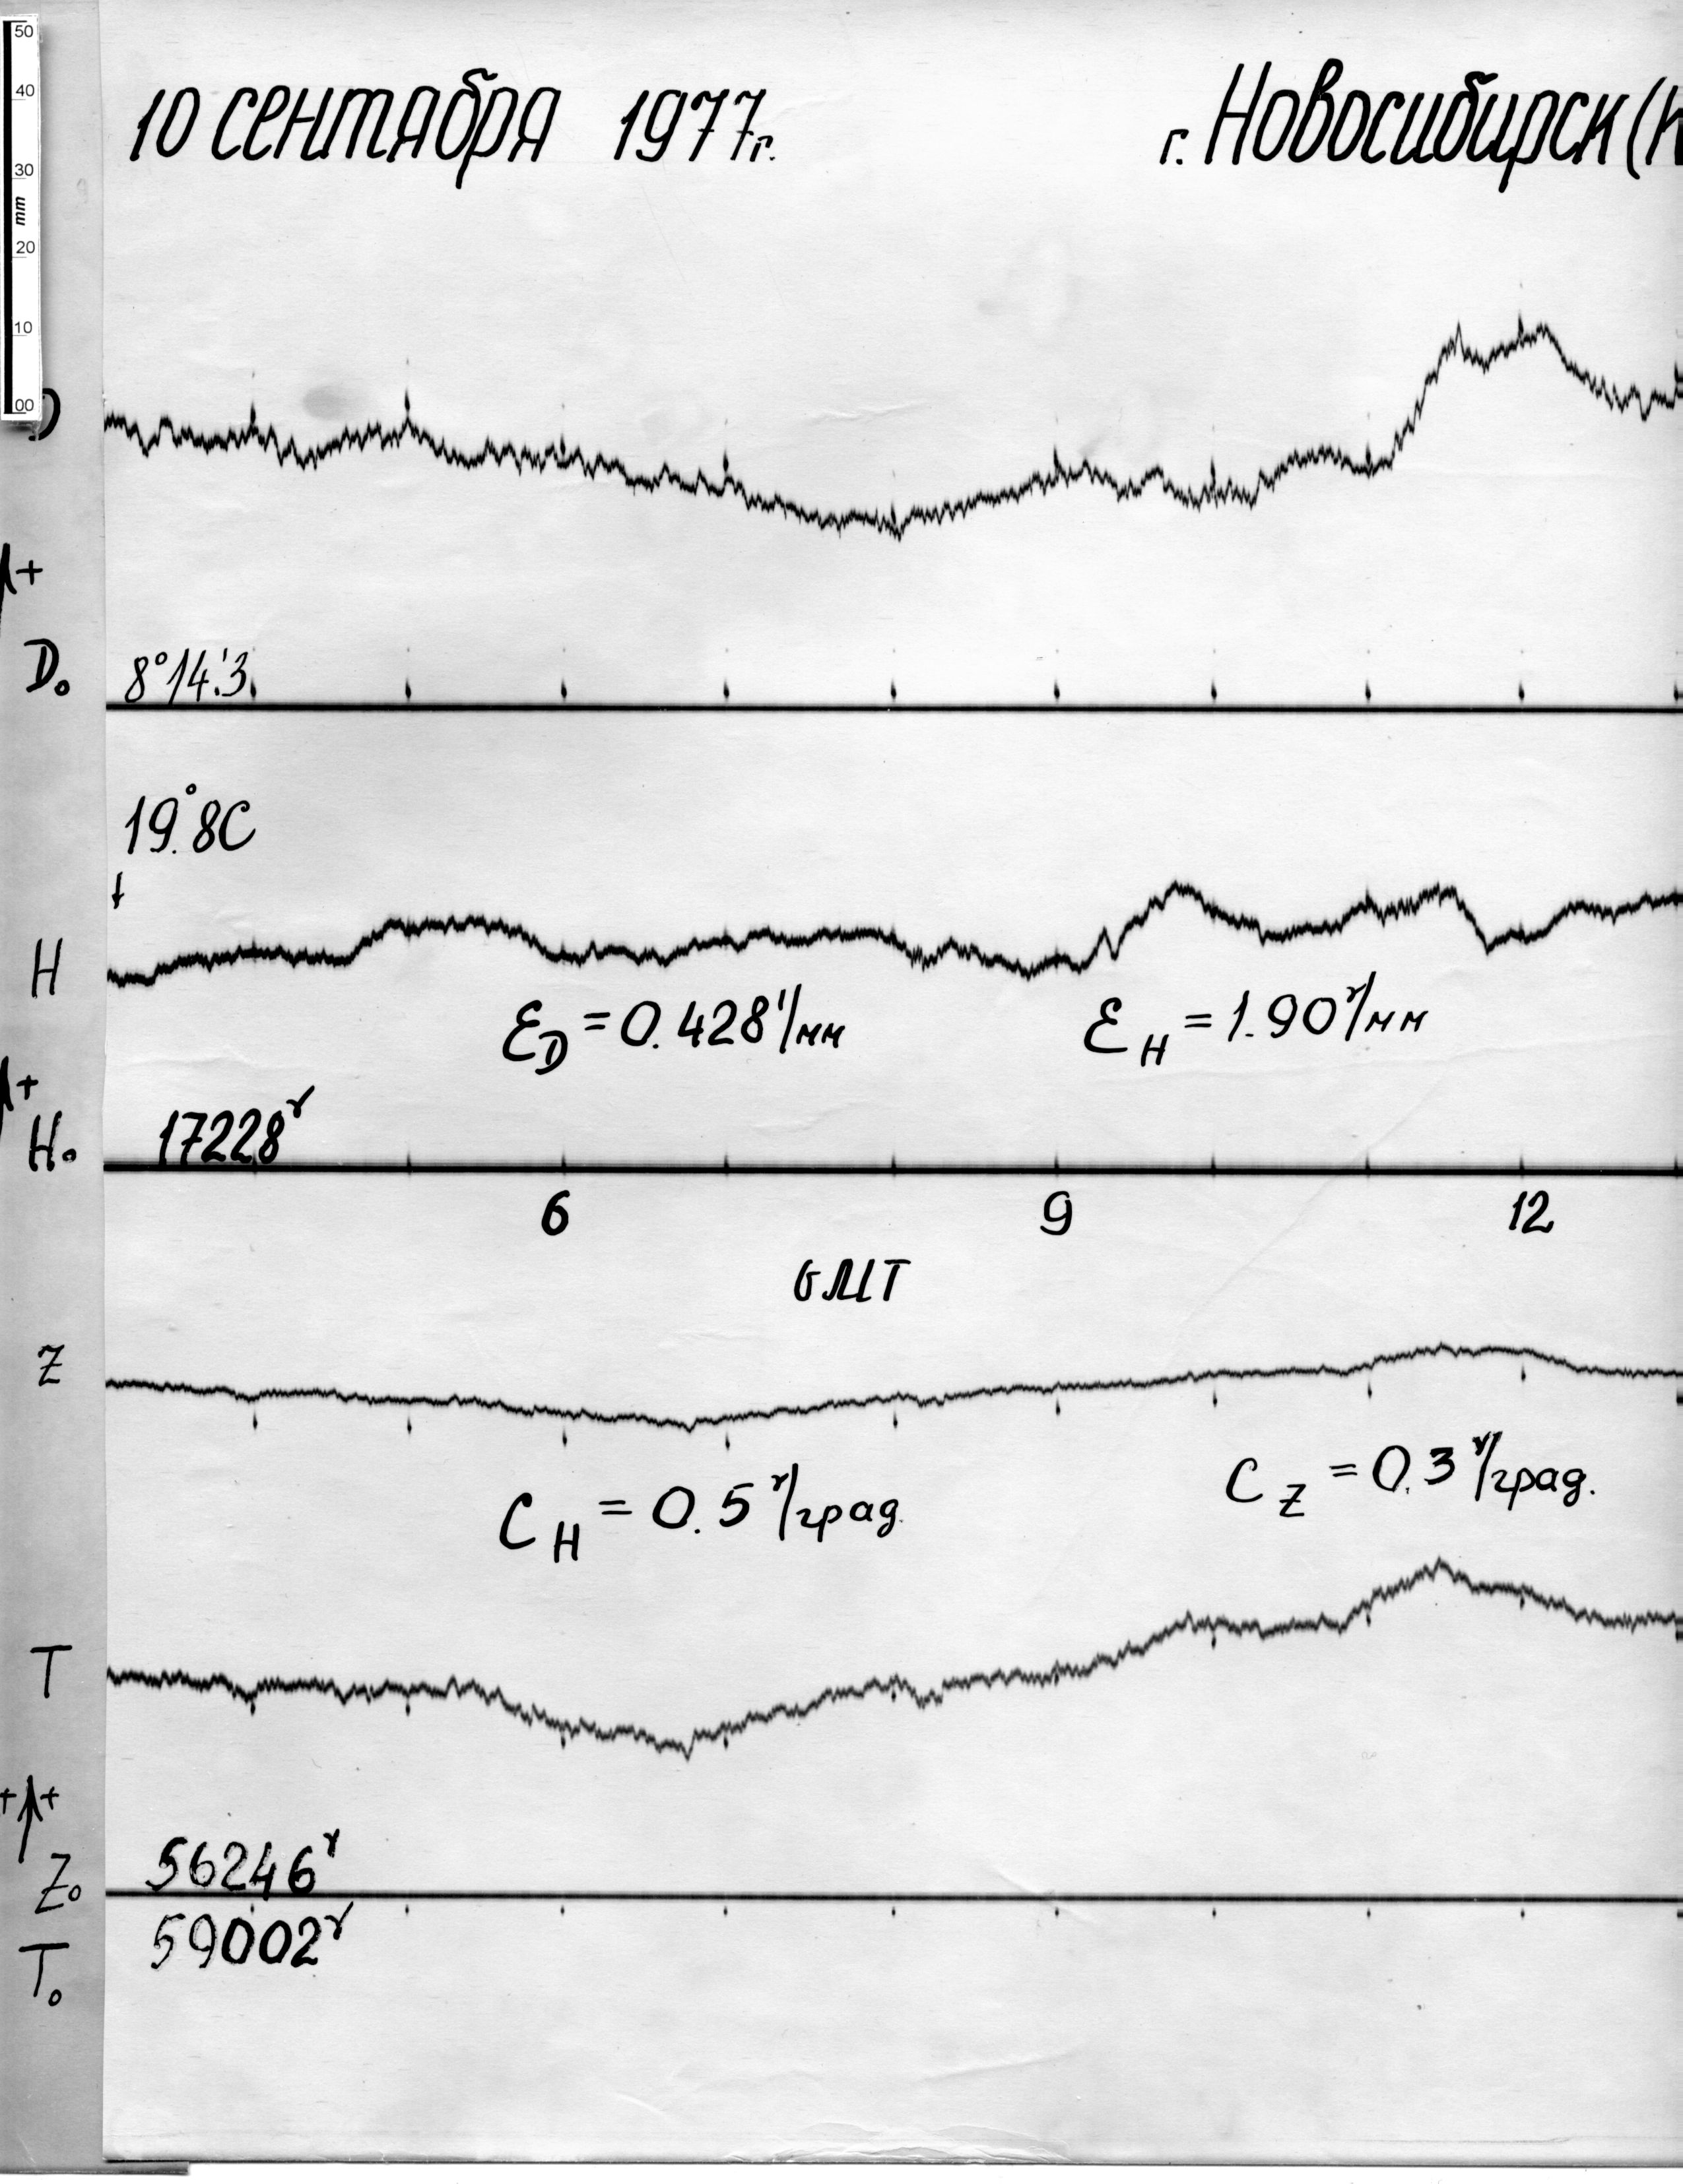 50
40
30
mm
20
10
00
10 сентября 1977г.
г. Новосибирск (К
D
+
D₀ 8°14.'3
19.°8С
H
ε_D = 0.428'/мм
ε_H = 1.90γ/мм
+
H₀ 17228γ
6 9 12
GMT
Z
C_H = 0.5γ/град.
C_Z = 0.3γ/град.
T
+ +
56246γ
Z₀
59002γ
T₀